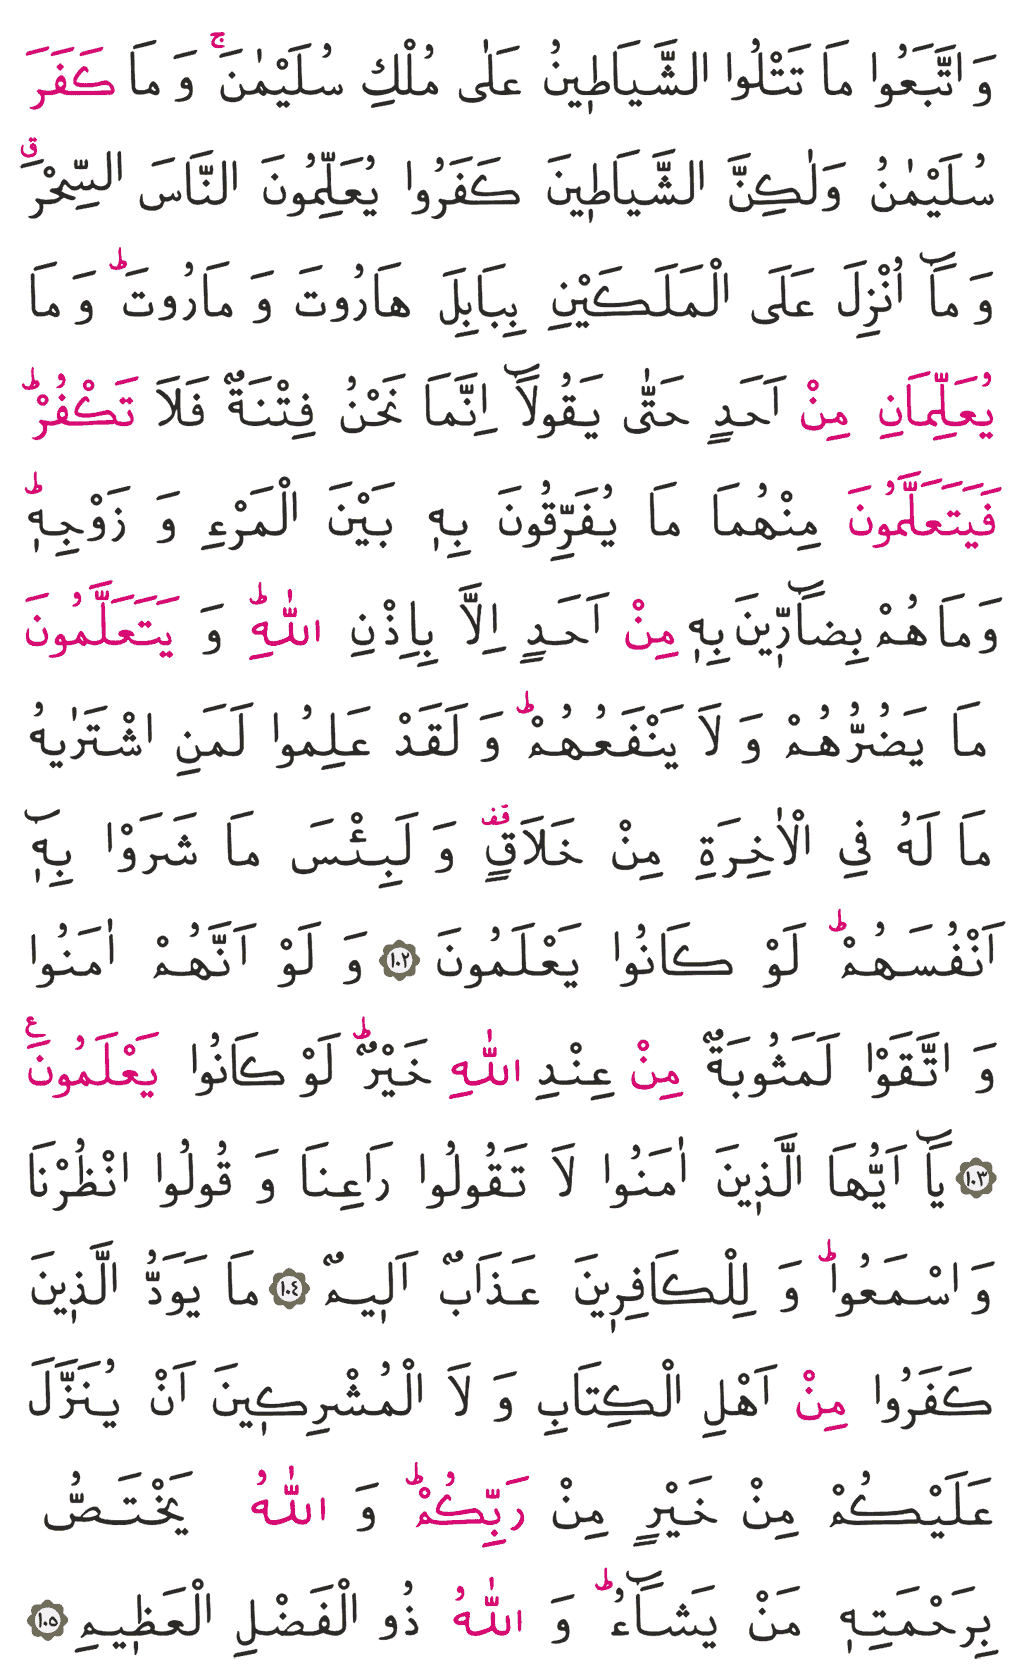 وَاتَّبَعُوا مَا تَتْلُوا الشَّيَاطٖينُ عَلٰى مُلْكِ سُلَيْمٰنَۚ وَ مَا كَفَرَ
سُلَيْمٰنُ وَلٰكِنَّ الشَّيَاطٖينَ كَفَرُوا يُعَلِّمُونَ النَّاسَ السِّحْرَࣗ
وَ مَٓا اُنْزِلَ عَلَى الْمَلَكَيْنِ بِبَابِلَ هَارُوتَ وَ مَارُوتَؕ وَ مَا
يُعَلِّمَانِ مِنْ اَحَدٍ حَتّٰى يَقُولَٓا اِنَّمَا نَحْنُ فِتْنَةٌ فَلَا تَكْفُرْؕ
فَيَتَعَلَّمُونَ مِنْهُمَا مَا يُفَرِّقُونَ بِهٖ بَيْنَ الْمَرْءِ وَ زَوْجِهٖؕ
وَمَا هُمْ بِضَٓارّٖينَ بِهٖ مِنْ اَحَدٍ اِلَّا بِاِذْنِ اللّٰهِؕ وَ يَتَعَلَّمُونَ
مَا يَضُرُّهُمْ وَ لَا يَنْفَعُهُمْؕ وَ لَقَدْ عَلِمُوا لَمَنِ اشْتَرٰيهُ
مَا لَهُ فِي الْاٰخِرَةِ مِنْ خَلَاقٍقف وَ لَبِئْسَ مَا شَرَوْا بِهٖٓ
اَنْفُسَهُمْؕ لَوْ كَانُوا يَعْلَمُونَ ﴿١٠٢﴾ وَ لَوْ اَنَّهُمْ اٰمَنُوا
وَ اتَّقَوْا لَمَثُوبَةٌ مِنْ عِنْدِ اللّٰهِ خَيْرٌؕ لَوْ كَانُوا يَعْلَمُونَࣖ
﴿١٠٣﴾ يَٓا اَيُّهَا الَّذٖينَ اٰمَنُوا لَا تَقُولُوا رَاعِنَا وَ قُولُوا انْظُرْنَا
وَ اسْمَعُواؕ وَ لِلْكَافِرٖينَ عَذَابٌ اَلٖيمٌ ﴿١٠٤﴾ مَا يَوَدُّ الَّذٖينَ
كَفَرُوا مِنْ اَهْلِ الْكِتَابِ وَ لَا الْمُشْرِكٖينَ اَنْ يُنَزَّلَ
عَلَيْكُمْ مِنْ خَيْرٍ مِنْ رَبِّكُمْؕ وَ اللّٰهُ يَخْتَصُّ
بِرَحْمَتِهٖ مَنْ يَشَٓاءُؕ وَ اللّٰهُ ذُو الْفَضْلِ الْعَظٖيمِ ﴿١٠٥﴾